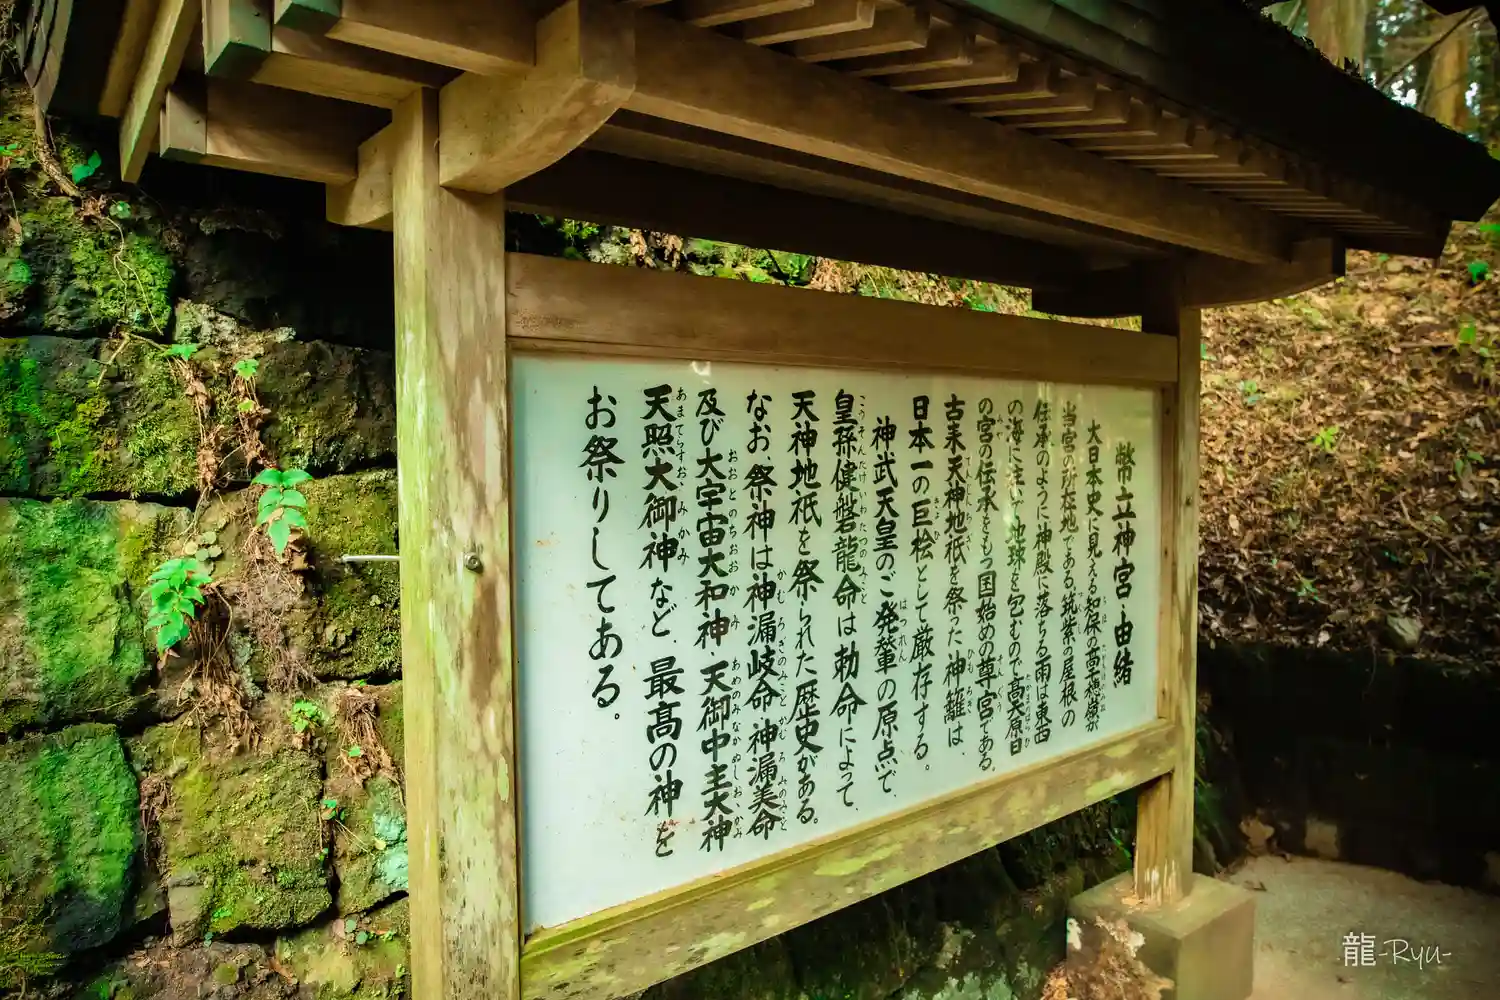 幣立神宮・由緒
大日本史に見える知保の高千穂嶺が
当宮の所在地である。筑紫の屋根の
伝承のように神殿に落ちる雨は東西
の海に注いで地球を包むので高天原日
の宮の伝承をもつ国始めの尊宮である。
古来天神地祇を祭った神籬は、
日本一の巨桧として厳存する。
神武天皇のご発輦の原点で、
皇孫健磐龍命は勅命によって、
天神地祇を祭られた歴史がある。
なお、祭神は神漏岐命 神漏美命
及び大宇宙大和神 天御中主大神
天照大御神など、最高の神を
お祭りしてある。
龍-Ryu-